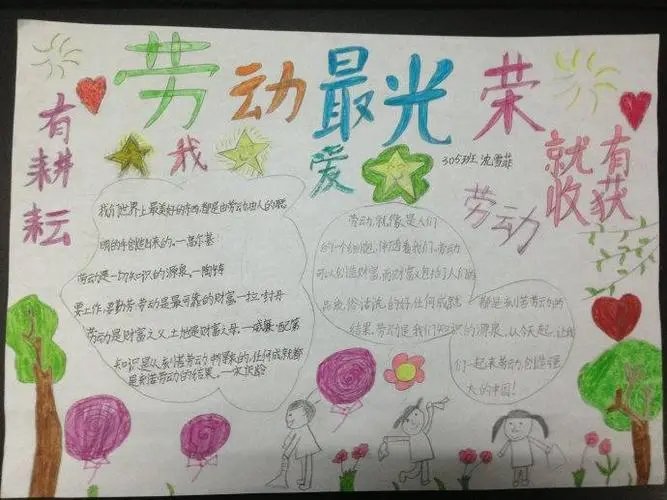 劳动最光荣
有耕耘
我爱劳动
305班 沈雪菲
就有收获
我们世界上最美好的东西,都是由劳动由人的聪
明的手创造出来的。—高尔基
劳动是一切知识的源泉。—陶铸
要工作,要勤劳:劳动是最可靠的财富—拉·封丹
劳动是财富之父,土地是财富之母。—威廉·配第
知识是从刻苦劳动中得来的,任何成就都
是刻苦劳动的结果。—宋庆龄
劳动,就像是人们
的一个细胞,伴随着我们,劳动
可以创造财富,而财富包括了人们的
品质,俗话说的好,任何成就
都是刻苦劳动的
结果,劳动是我们知识的源泉,从今天起,让我
们一起来劳动,创造强
大的中国!